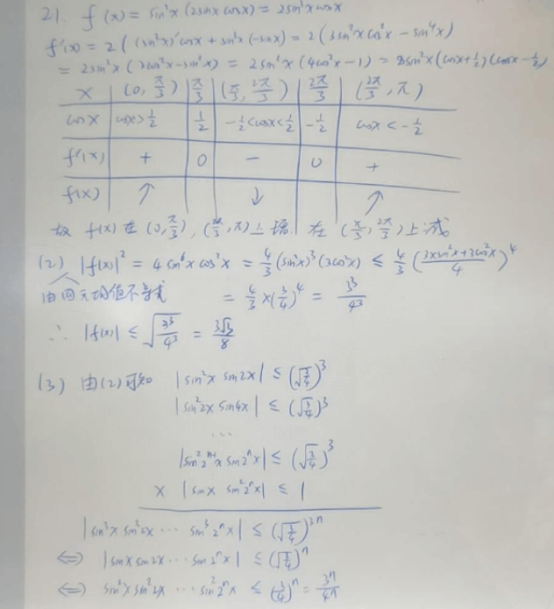 21. f(x) = sin²x (2sinx cosx) = 2sin³x cosx
f'(x) = 2((sin³x)'cosx + sin³x(-sinx)) = 2(3sin²x cos²x - sin⁴x)
= 2sin²x(3cos²x - sin²x) = 2sin²x(4cos²x - 1) = 8sin²x(cosx + 1/2)(cosx - 1/2)
x (0, π/3) π/3 (π/3, 2π/3) 2π/3 (2π/3, π)
cosx cosx > 1/2 1/2 -1/2 < cosx < 1/2 -1/2 cosx < -1/2
f'(x) + 0 - 0 +
f(x) ↑ ↓ ↑
故 f(x) 在 (0, π/3), (2π/3, π) 上增 在 (π/3, 2π/3) 上减
(2) |f(x)|² = 4 sin⁶x cos²x = 4/3 (sin²x)³(3cos²x) ≤ 4/3 ((3sin²x + 3cos²x)/4)⁴
由四元均值不等式 = 4/3 × (3/4)⁴ = 3³/4³
∴ |f(x)| ≤ √(3³/4³) = 3√3/8
(3) 由(2)可知 |sin²x sin2x| ≤ (√(3/4))³
|sin²2x sin4x| ≤ (√(3/4))³
...
|sin²2ⁿ⁻¹x sin2ⁿx| ≤ (√(3/4))³
× |sinx sin²2ⁿx| ≤ 1
|sin³x sin³2x ... sin³2ⁿx| ≤ (√(3/4))³ⁿ
⇔ |sinx sin2x ... sin2ⁿx| ≤ (√(3/4))ⁿ
⇔ sin²x sin²2x ... sin²2ⁿx ≤ (3/4)ⁿ = 3ⁿ/4ⁿ